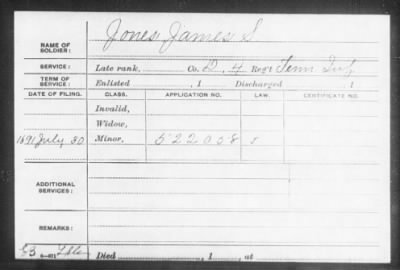 NAME OF SOLDIER: Jones, James S
SERVICE: Late rank, Co. D, 4 Reg't Tenn Inf
TERM OF SERVICE: Enlisted , 1 Discharged , 1
DATE OF FILING. CLASS. APPLICATION NO. LAW. CERTIFICATE NO.
Invalid,
Widow,
1891 July 30 Minor, 522008
ADDITIONAL SERVICES:
REMARKS:
Died , 1 , at